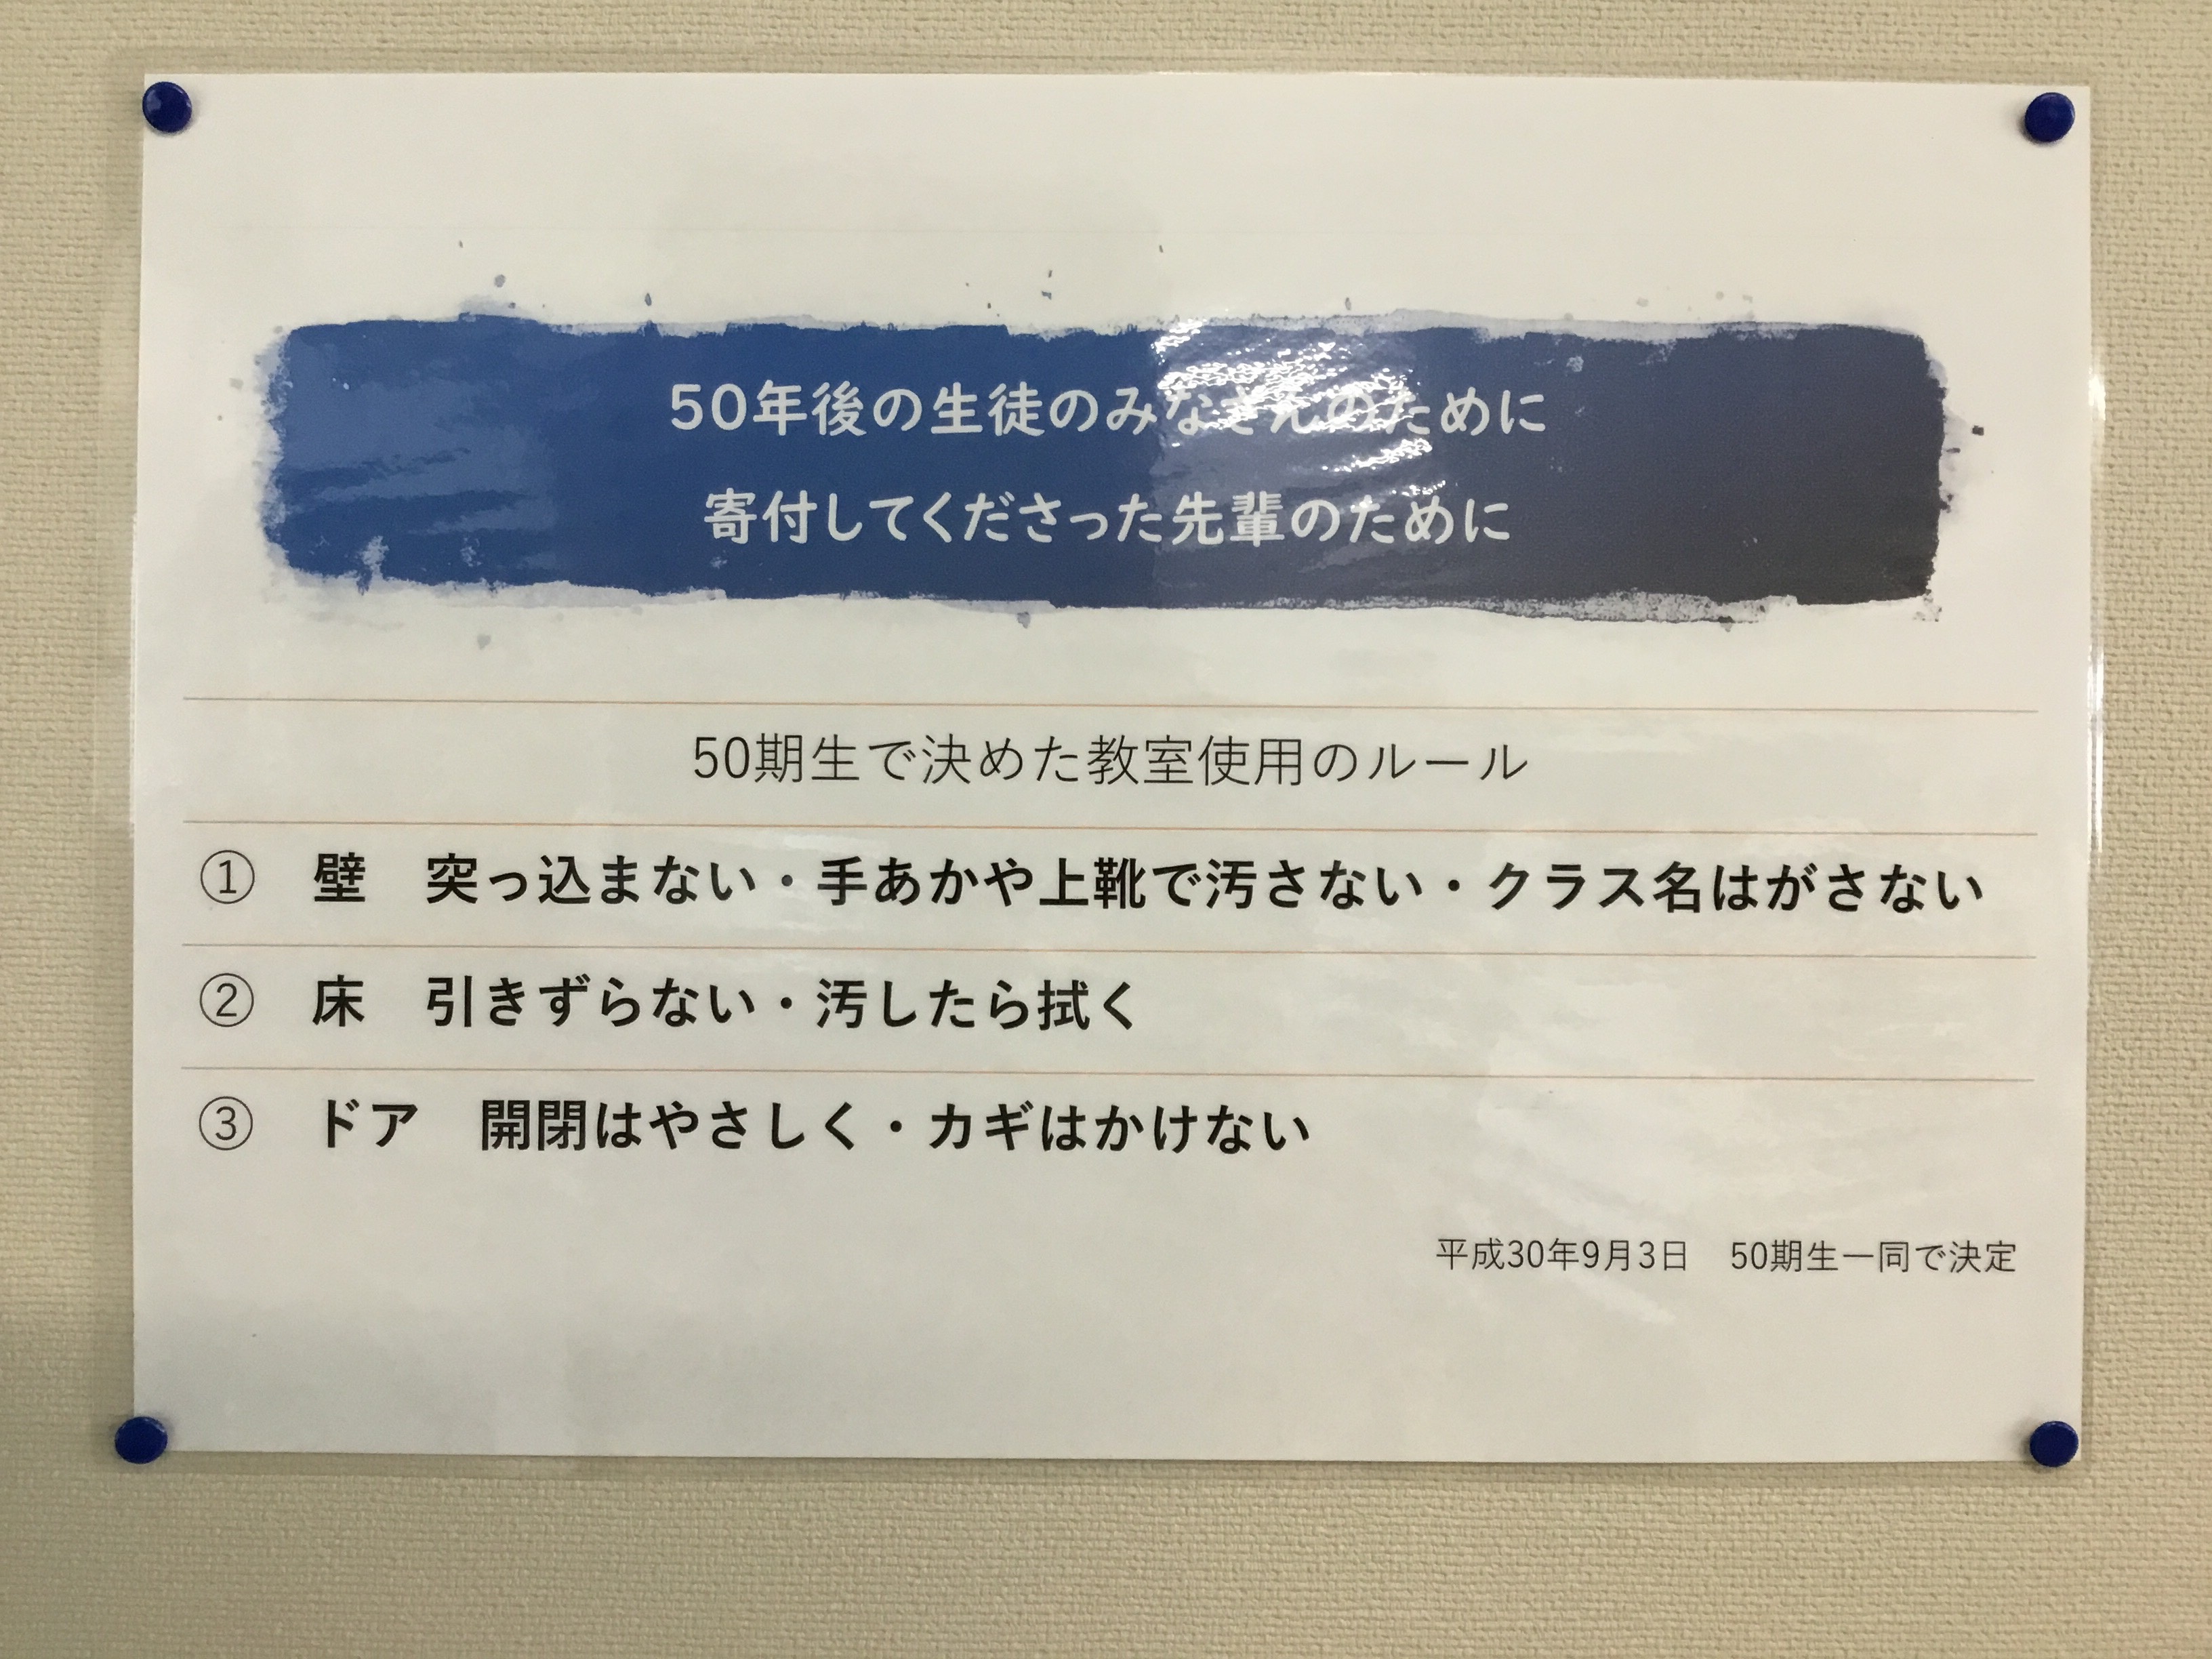 50年後の生徒のみなさんのために
寄付してくださった先輩のために
50期生で決めた教室使用のルール
① 壁 突っ込まない・手あかや上靴で汚さない・クラス名はがさない
② 床 引きずらない・汚したら拭く
③ ドア 開閉はやさしく・カギはかけない
平成30年9月3日 50期生一同で決定